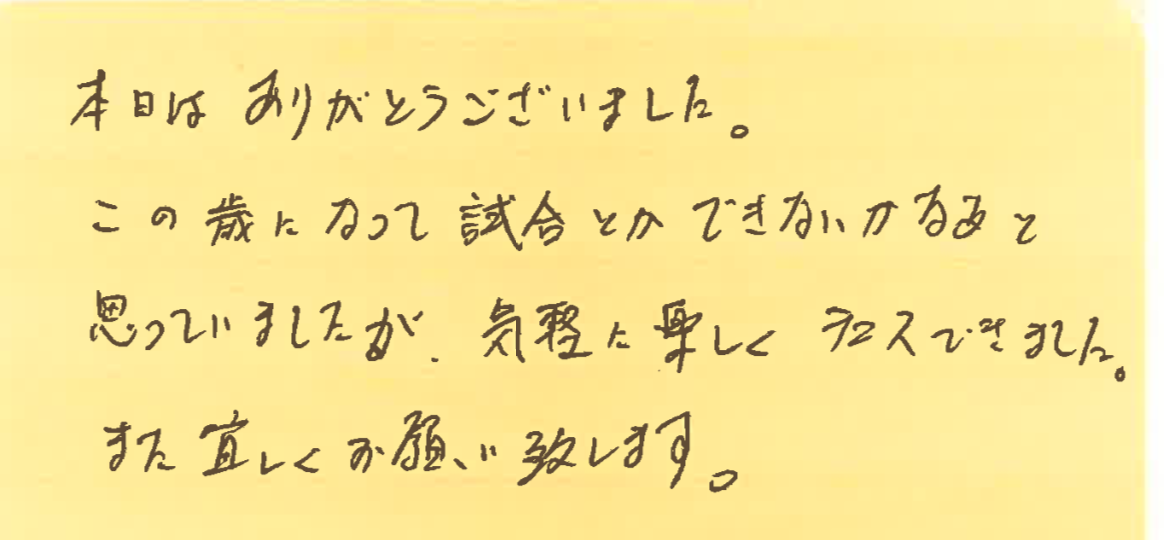 本日は ありがとうございました。
この歳になって試合とかできないかなあと
思っていましたが、気軽に楽しくテニスできました。
また宜しくお願い致します。